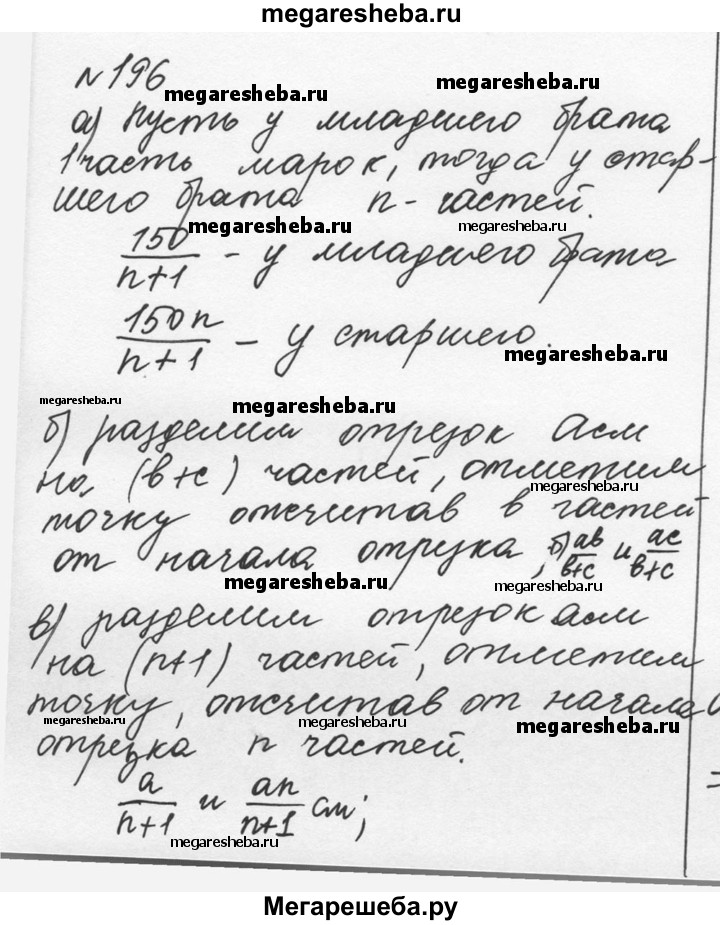 megaresheba.ru
№196
megaresheba.ru
megaresheba.ru
а) Пусть у младшего брата
1 часть марок, тогда у стар-
шего брата n - частей.
megaresheba.ru
megaresheba.ru
150/n+1 - у младшего брата
150n/n+1 - у старшего.
megaresheba.ru
megaresheba.ru
megaresheba.ru
б) разделим отрезок а см
на (в+с) частей, отметим
megaresheba.ru
точку отсчитав в частей
от начала отрезка, б) ав/в+с и ас/в+с
megaresheba.ru
megaresheba.ru
в) разделим отрезок а см
на (n+1) частей, отметим
точку, отсчитав от начала
megaresheba.ru
megaresheba.ru
megaresheba.ru
отрезка n частей.
а/n+1 и аn/n+1 см;
megaresheba.ru
=
Мегарешеба.ру